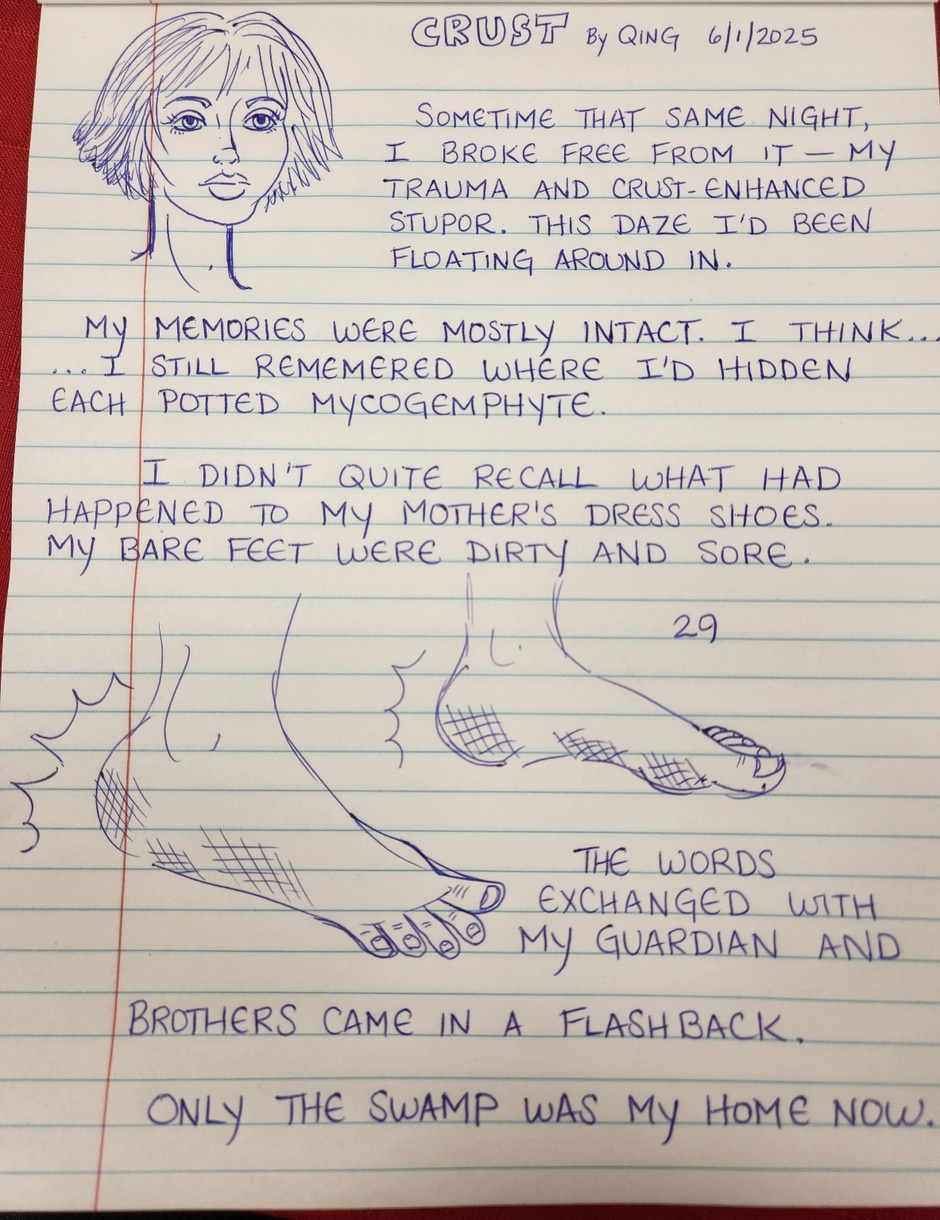 CRUST By QING 6/1/2025
SOMETIME THAT SAME NIGHT,
I BROKE FREE FROM IT — MY
TRAUMA AND CRUST-ENHANCED
STUPOR. THIS DAZE I'D BEEN
FLOATING AROUND IN.
MY MEMORIES WERE MOSTLY INTACT. I THINK...
...I STILL REMEMERED WHERE I'D HIDDEN
EACH POTTED MYCOGEMPHYTE.
I DIDN'T QUITE RECALL WHAT HAD
HAPPENED TO MY MOTHER'S DRESS SHOES.
MY BARE FEET WERE DIRTY AND SORE.
29
THE WORDS
EXCHANGED WITH
MY GUARDIAN AND
BROTHERS CAME IN A FLASHBACK.
ONLY THE SWAMP WAS MY HOME NOW.